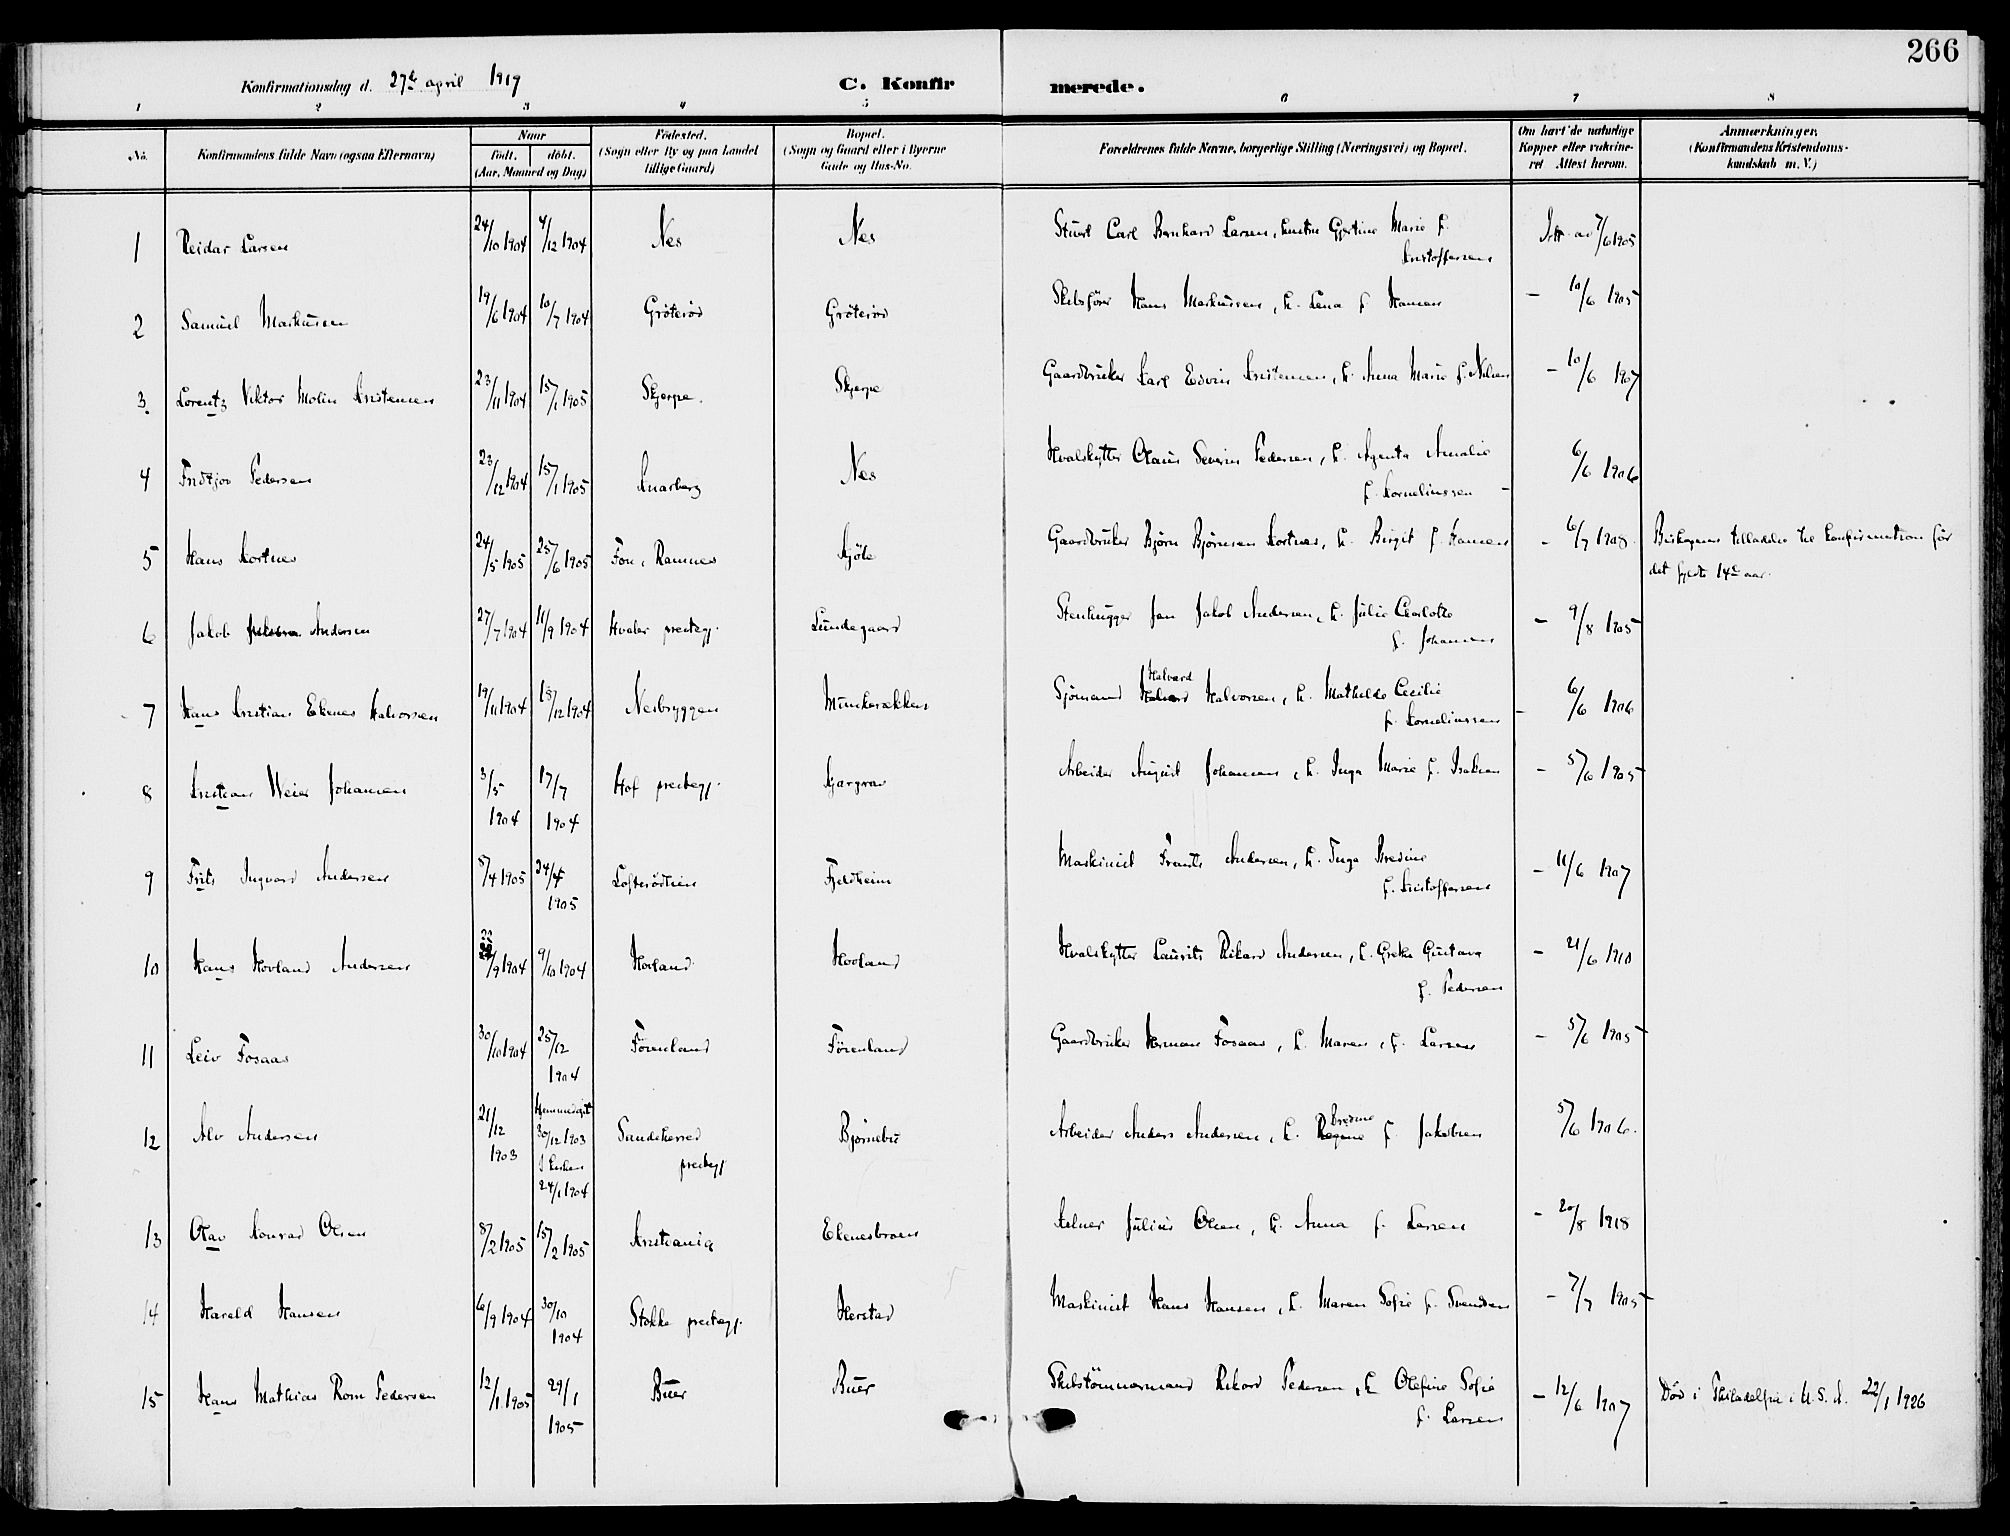 266
Konfirmationsdag d. 27de april 1919 C. Konfirmerede.
1 2 3 4 5 6 7 8
No. Konfirmandens fulde Navn (ogsaa Efternavn) Naar født. døbt. (Aar, Maaned og Dag) Fødested. (Sogn eller By og paa Landet tillige Gaard) Bopæl. (Sogn og Gaard eller i Byerne Gade og Hus-No. Forældrenes fulde Navne, borgerlige Stilling (Næringsvei) og Bopæl. Om havt de naturlige Kopper eller vakcineret Attest herom. Anmærkninger. (Konfirmandens Kristendomskundskab m. V.)
1 Reidar Larsen 24/10 1904 4/12 1904 Nes Nes Stuert Carl Bernhard Larsen, hustru Gjertine Marie f. Kristoffersen av 7/6 1905
2 Samuel Markussen 19/6 1904 10/7 1904 Gröteröd Gröteröd Skibsfører Hans Markussen, h. Lena f. Hansen — 10/6 1905
3 Lorentz Viktor Molin Kristensen 23/11 1904 15/1 1905 Skjerpe. Skjerpe Gaardbruker Karl Edvin Kristensen, h. Anna Marie f. Nilsen — 10/6 1907
4 Fridtjov Pedersen 23/12 1904 15/1 1905 Knarberg Nes Hvalskytter Olaus Severin Pedersen, h. Agenta Amalie f. Korneliussen — 6/6 1906
5 Hans Kortnes 24/5 1905 25/6 1905 Fon, Ramnes Kjöle Gaardbruker Bjørn Bjørnsen Kortnes, h. Birgit f. Hansen - 6/7 1908. Biskopens tilladelse til konfirmation før det fyldte 14de aar.
6 Jakob Andersen 27/7 1904 11/9 1904 Hvaler prestegj. Lundegaard Stenhugger Jan Jakob Andersen, h. Julie Charlotte f. Johansen — 9/8 1905
7 Hans Kristian Ekenes Halvorsen 19/11 1904 18/12 1904 Nesbryggen Munkerekken Sjömand Halvard Halvorsen, h. Mathilde Cecilie f. Korneliussen — 6/6 1906
8 Kristian Weier Johansen 3/5 1904 17/7 1904 Hof prestegj. Arbeider August Johansen, h. Inga Marie f. Isaksen — 5/6 1905
9 Frits Ingvard Andersen 5/4 1905 24/4 1905 Fjeldheim Maskinist Frants Andersen, h. Inga Bredine f. Kristoffersen — 11/6 1907
10 Hans Hovland Andersen 22/9 1904 9/10 1904 Hovland Hovland Hvalskytter Laurits Rikard Andersen, h. Grethe Gustava f. Pedersen — 21/6 1910
11 Leiv Fosaas 30/10 1904 25/12 1904 Förenland Förenland Gaardbruker Herman Fosaas, h. Maren, f. Larsen — 5/6 1905
12 Alv Andersen 21/12 1903 Hjemmedøpt 30/12 1903 I kirken 24/1 1904 Sandeherred prestegj Bjørnebu Arbeider Anders Andersen, h. Bredine f. Jakobsen 5/6 1906.
13 Olav Konrad Olsen 8/2 1905 15/2 1905 Kristiania Ekenesbroen Kelner Julius Olsen, h. Anna f. Larsen - 20/8 1918
14 Harald Hansen 6/9 1904 30/10 1904 Stokke prestegj. Herstad Maskinist Hans Hansen, h. Maren Sofie f. Svendsen — 7/7 1905
15 Hans Mathias Rom Pedersen 12/1 1905 29/1 1905 Buer Buer Skibstömmermand Rikard Pedersen, h Olefine Sofie f. Larsen — 12/6 1907 Död i Philadelfia i U.S.A. 22/1 1926